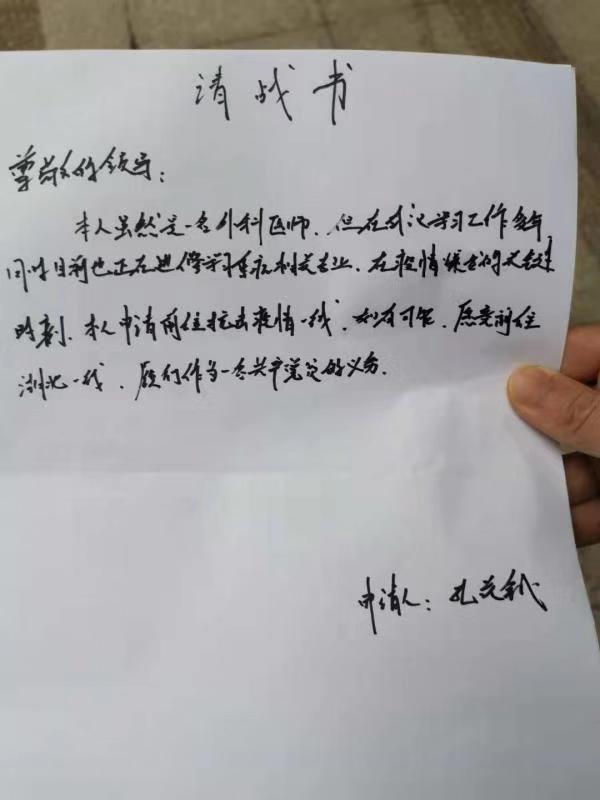 请战书
尊敬的领导：
本人虽然是一名外科医师，但在武汉学习工作多年
同时目前也正在进修学习重症相关专业，在疫情的关键
时刻，本人申请前往抗击疫情一线，如有可能，愿意前往
湖北一线，履行作为一名共产党员的义务。
申请人：孔